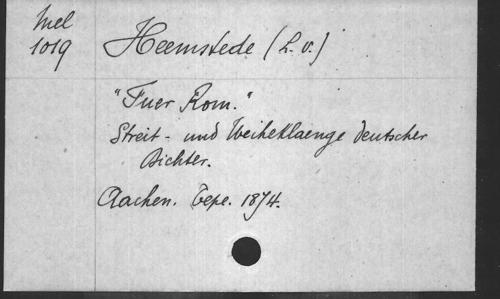 Mel
1019
Heemstede (L. v.)
"Fuer Rom."
Streit- und Weiheklaenge deutscher
Dichter.
Aachen. Tepe. 1874.